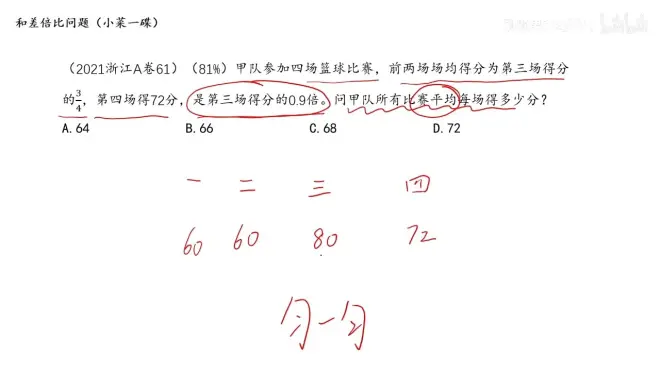 和差倍比问题（小菜一碟）
（2021浙江A卷61）（81%）甲队参加四场篮球比赛，前两场场均得分为第三场得分
的3/4，第四场得72分，是第三场得分的0.9倍。问甲队所有比赛平均每场得多少分？
A. 64 B. 66 C. 68 D. 72
一 二 三 四
60 60 80 72
匀一匀